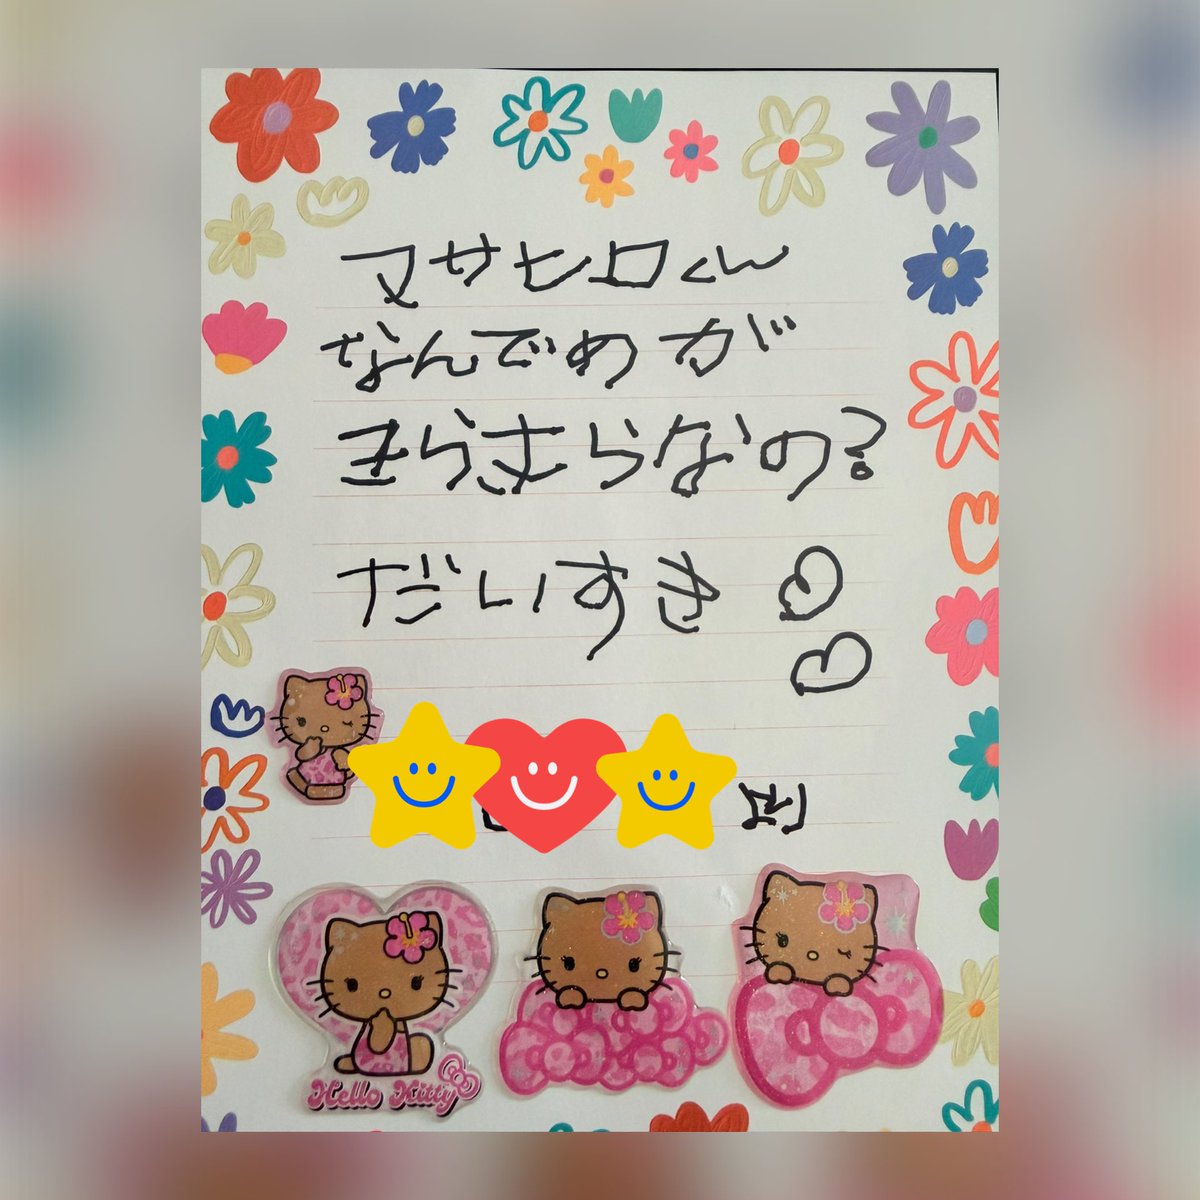 マサヒロくん
なんでめが
きらきらなの?
だいすき♡
♡
より
Hello Kitty